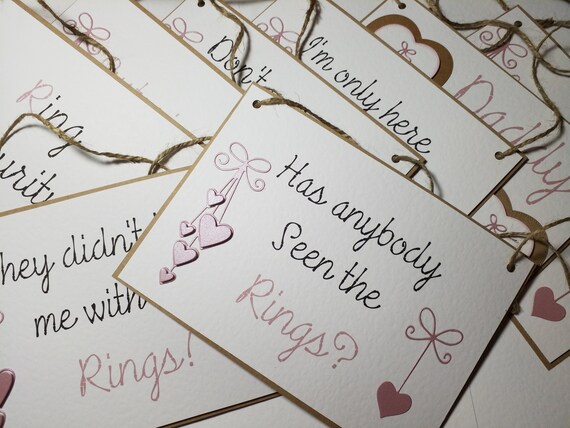 Ring
Don't
I'm only here
Daddy
hey didn't
me with
Rings!
Has anybody
Seen the
Rings?